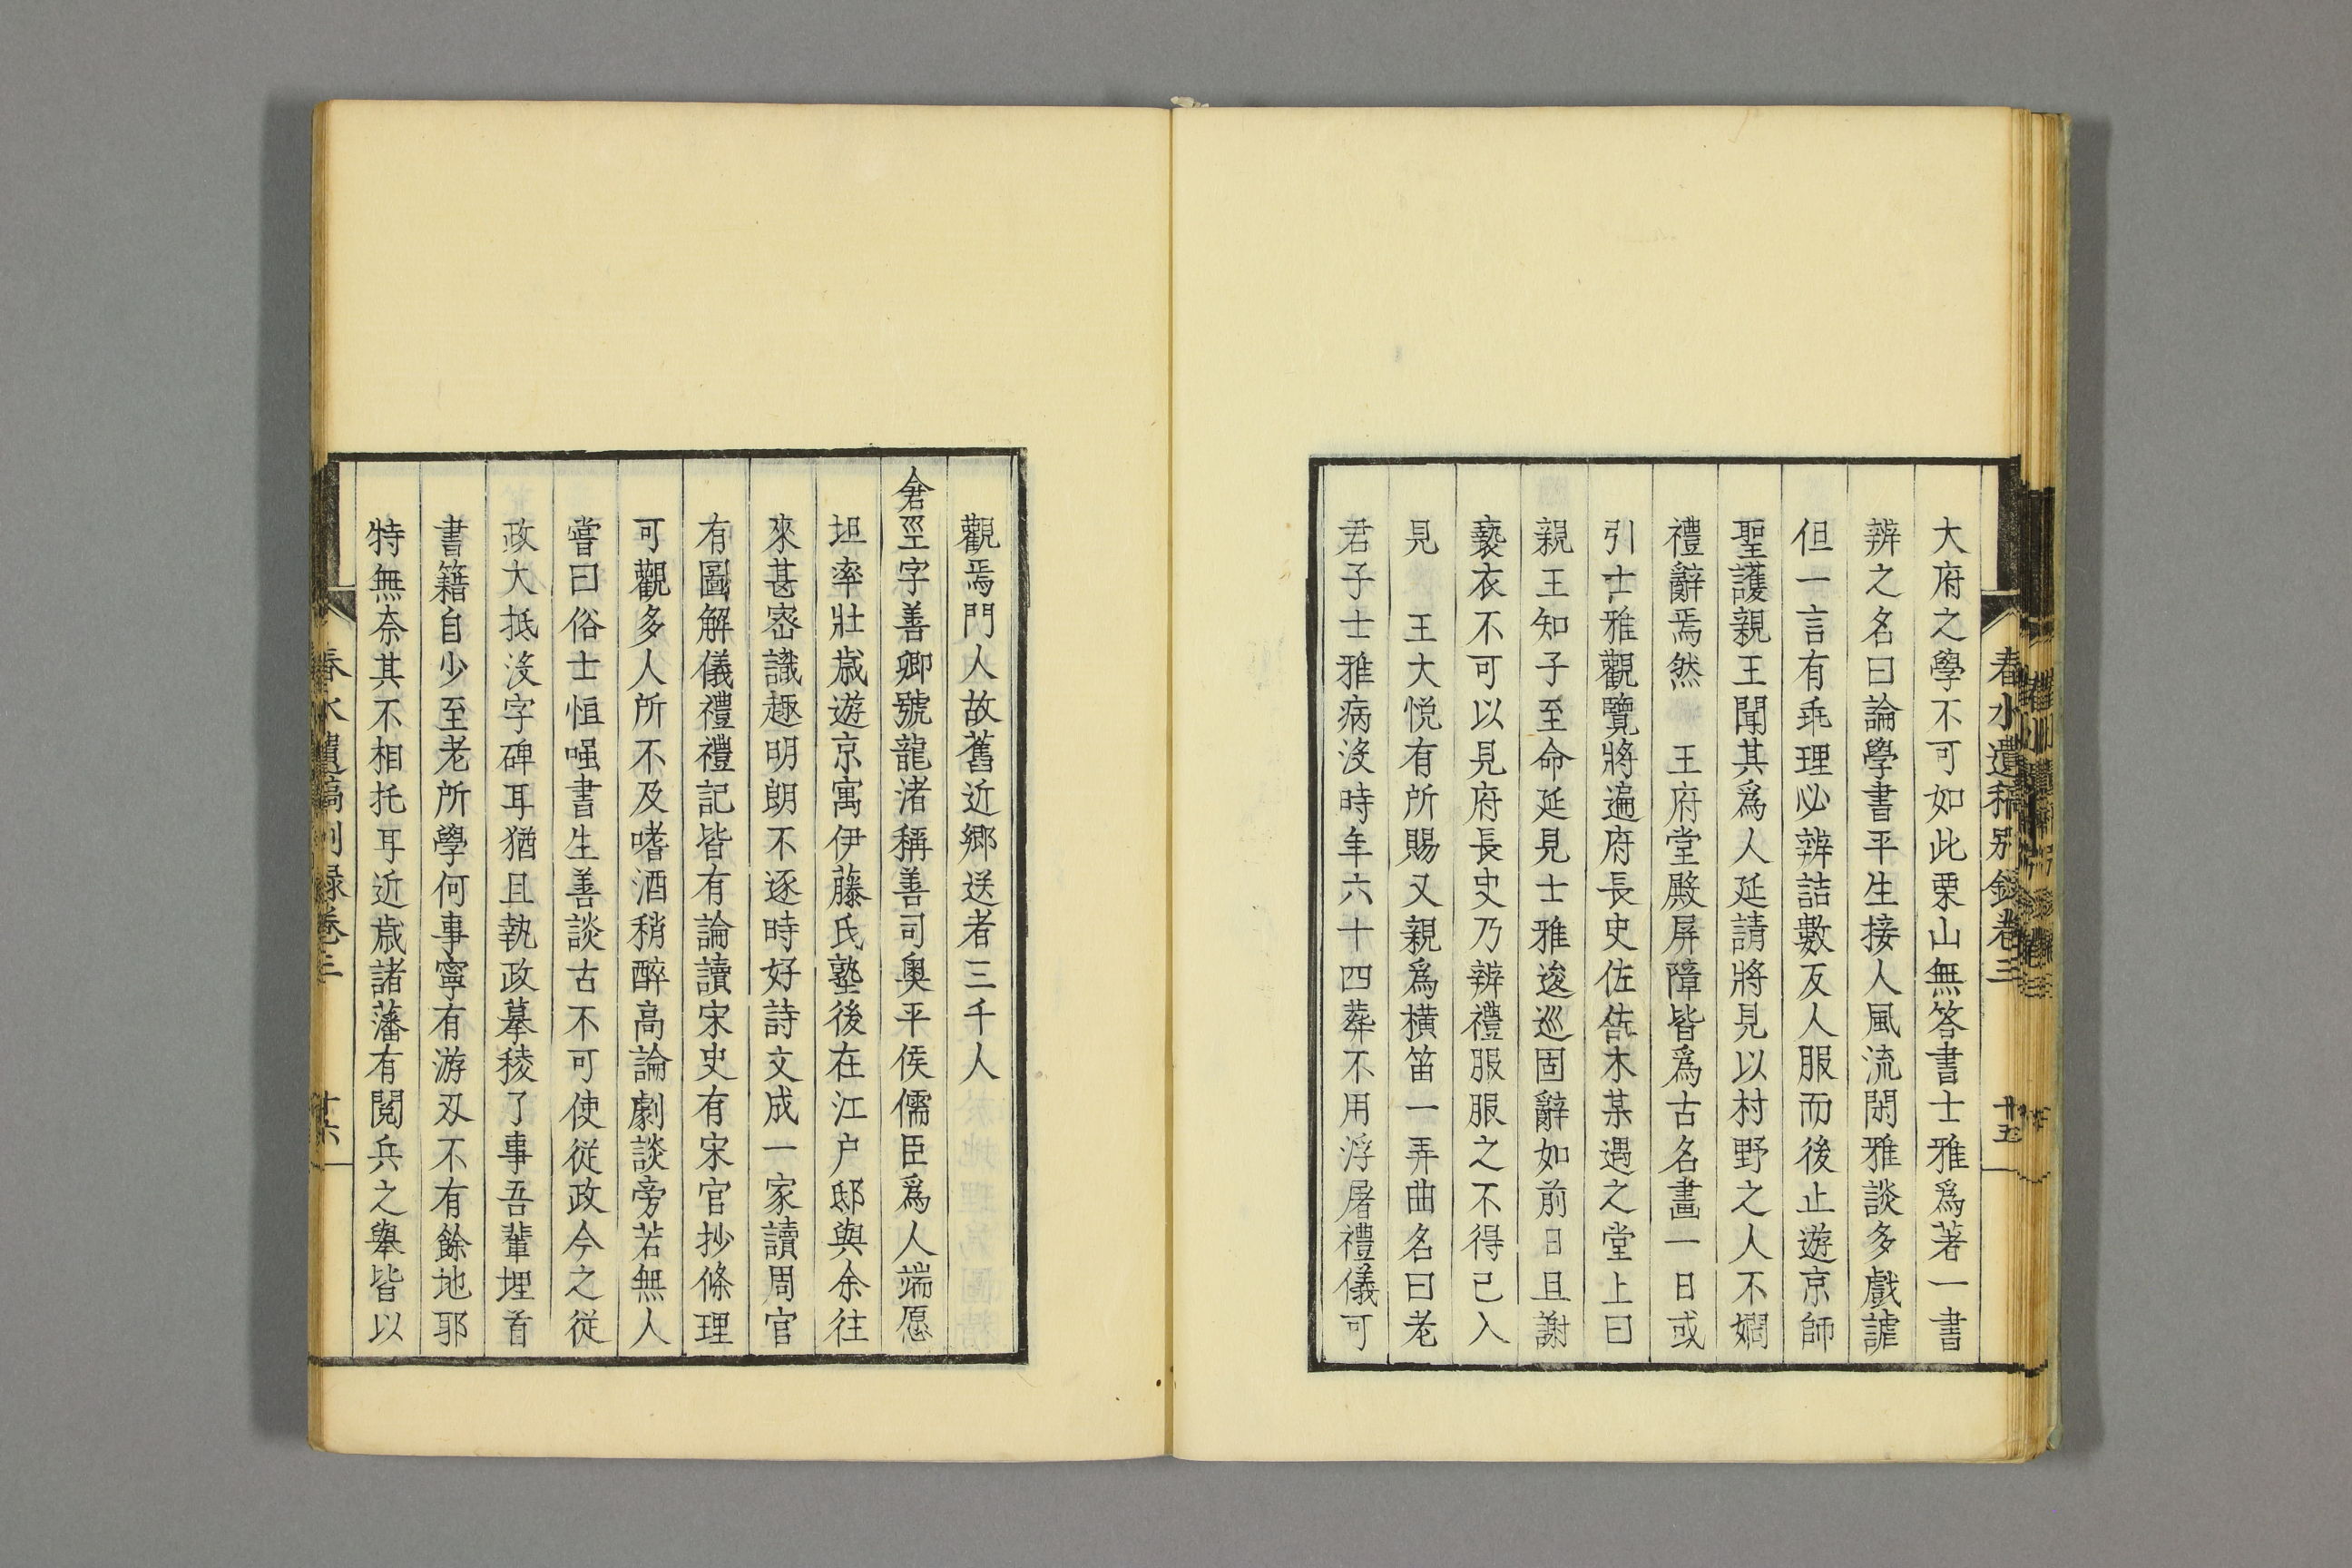 春水遺稿別録卷三
廿五
大府之學不可如此栗山無答書士雅爲著一書
辨之名曰論學書平生接人風流閑雅談多戲謔
但一言有乖理必辨詰數反人服而後止遊京師
聖護親王聞其爲人延請將見以村野之人不嫺
禮辭焉然　王府堂殿屏障皆爲古名畫一日或
引士雅觀覽將遍府長史佐佐木某遇之堂上曰
親王知子至命延見士雅逡巡固辭如前日且謝
褻衣不可以見府長史乃辨禮服服之不得已入
見　王大悦有所賜又親爲横笛一弄曲名曰老
君子士雅病沒時年六十四葬不用浮屠禮儀可
觀焉門人故舊近郷送者三千人
倉巠字善卿號龍渚稱善司奥平侯儒臣爲人端愿
坦率壯歳遊京寓伊藤氏塾後在江户邸與余往
來甚密識趣明朗不逐時好詩文成一家讀周官
有圖解儀禮禮記皆有論讀宋史有宋官抄條理
可觀多人所不及嗜酒稍醉高論劇談旁若無人
嘗曰俗士恒嗤書生善談古不可使從政今之從
政大抵沒字碑耳猶且執政摹稜了事吾輩埋首
書籍自少至老所學何事寧有游刃不有餘地耶
特無奈其不相托耳近歳諸藩有閲兵之舉皆以
春水遺稿別録卷三
廿六